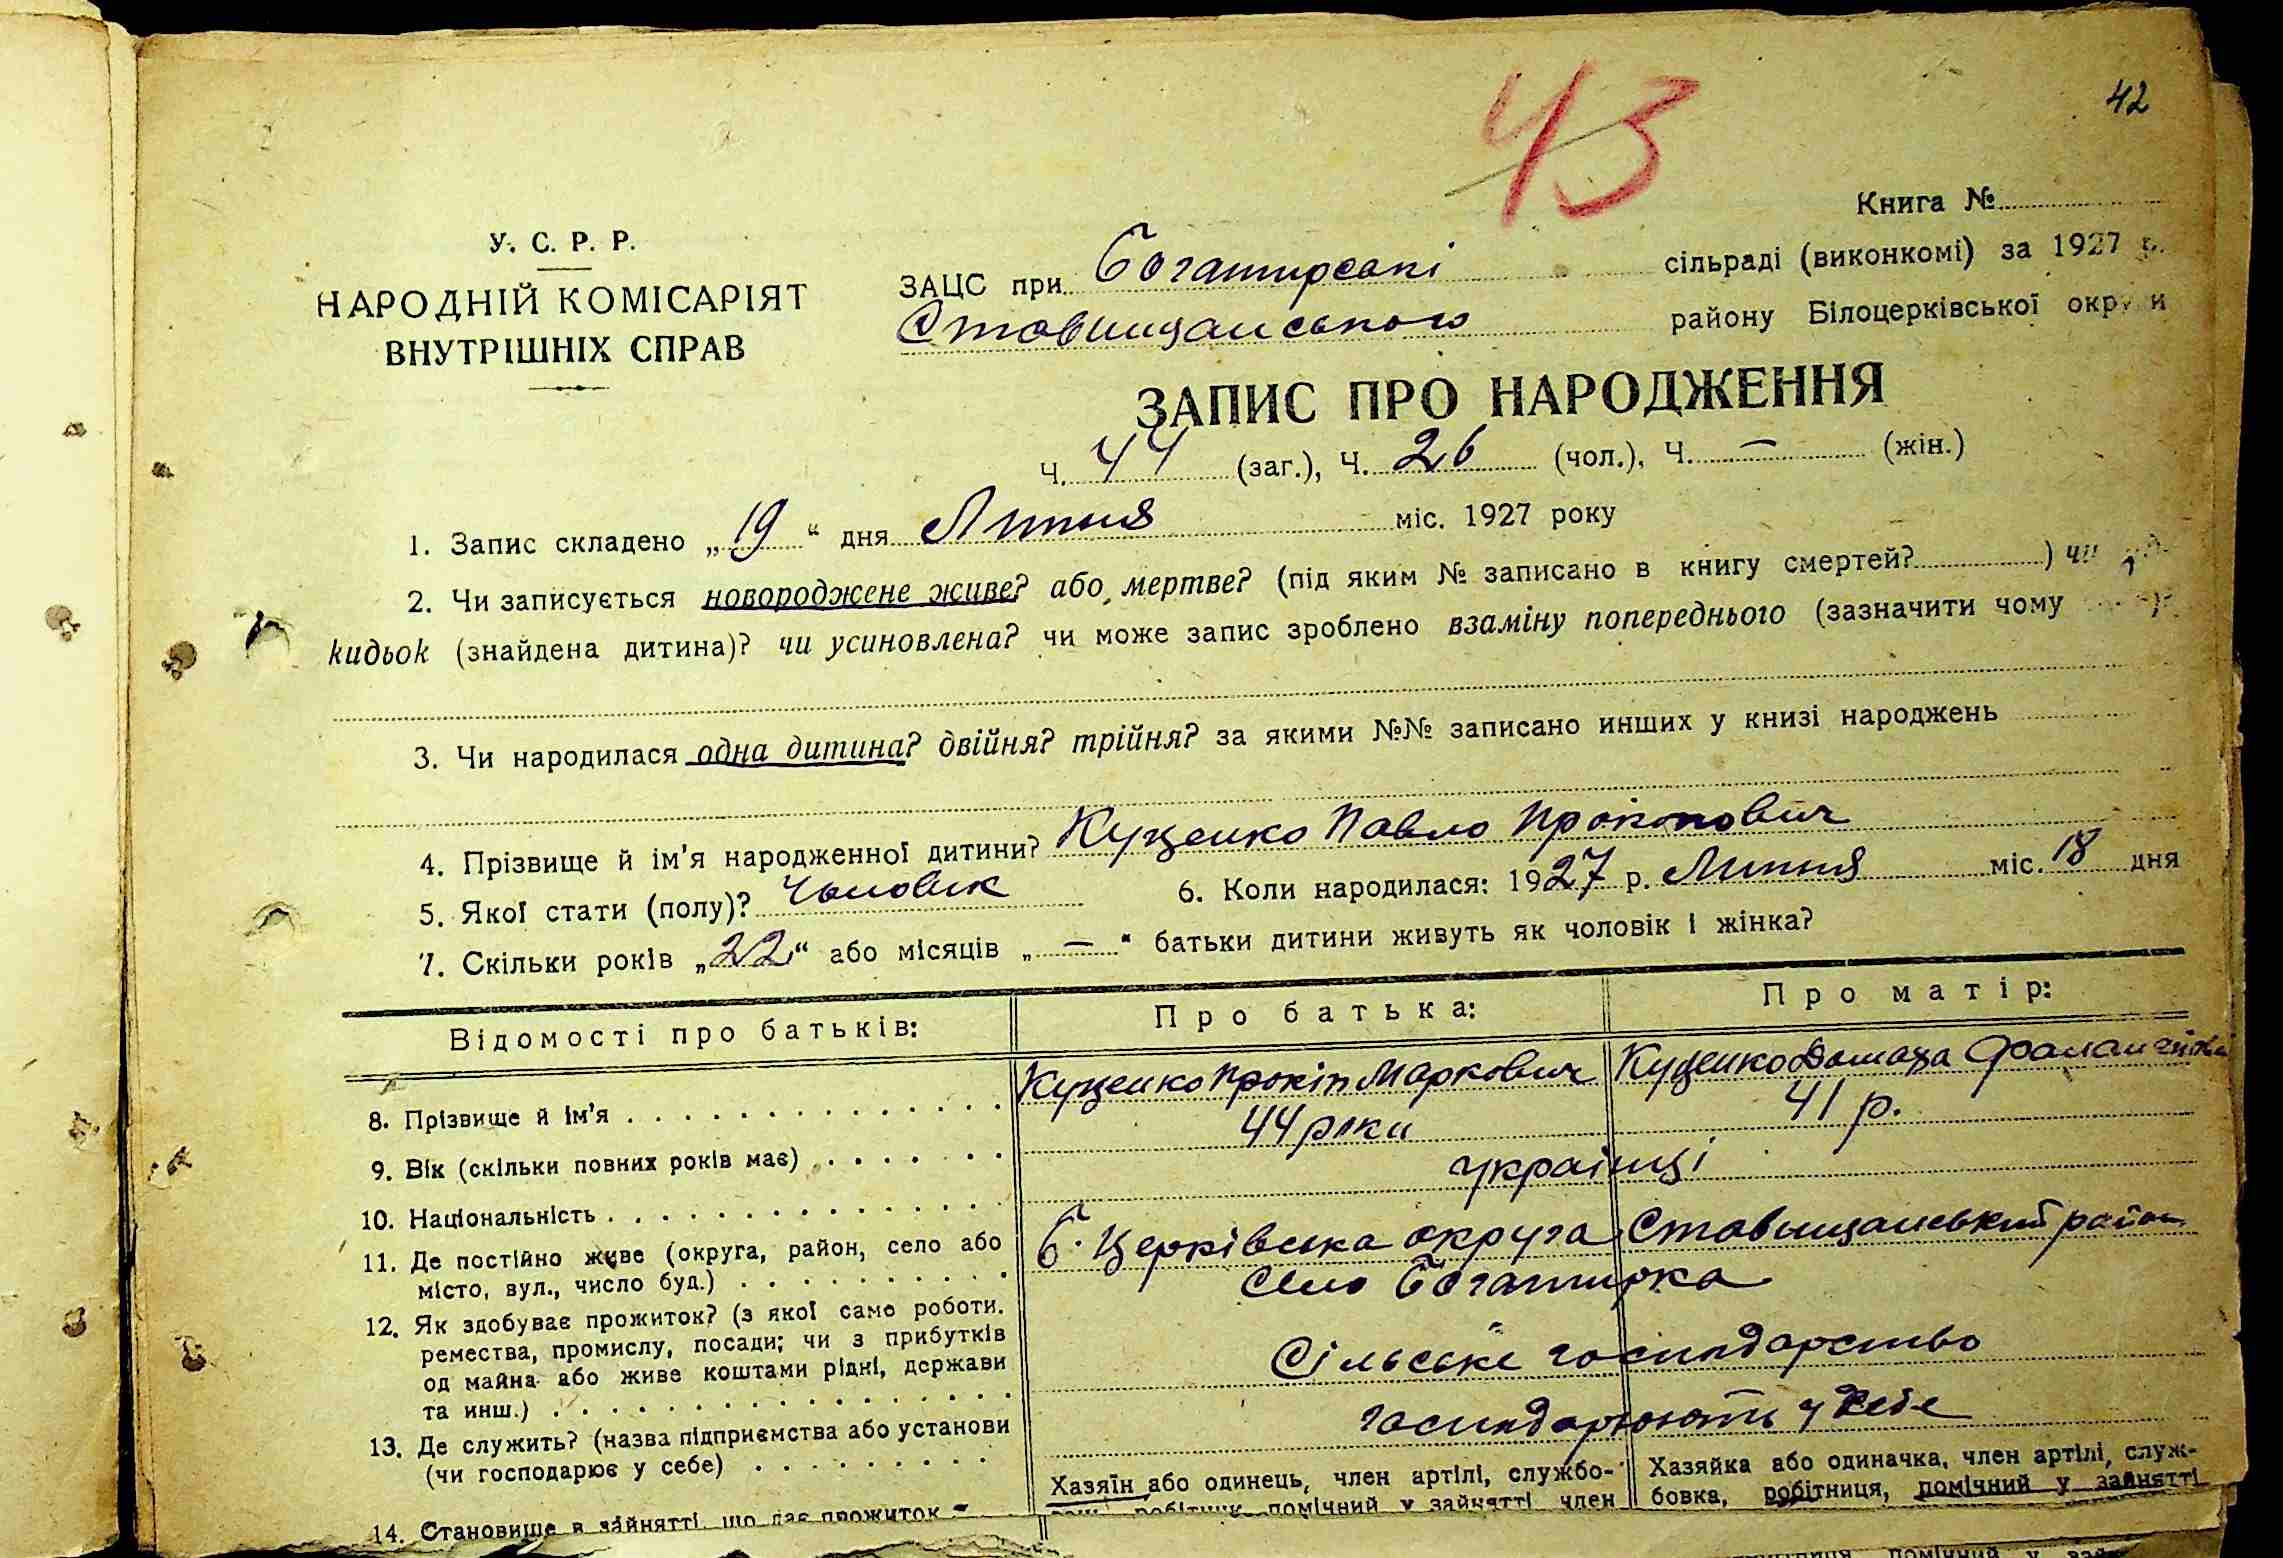 43
42
Книга №
У. С. Р. Р.
НАРОДНІЙ КОМІСАРІЯТ
ВНУТРІШНІХ СПРАВ
ЗАЦС при Богатирській сільраді (виконкомі) за 1927 р.
Ставищанського району Білоцерківської округи
ЗАПИС ПРО НАРОДЖЕННЯ
Ч. 44 (заг.), Ч. 26 (чол.), Ч. — (жін.)
1. Запис складено „19“ дня Липня міс. 1927 року
2. Чи записується новороджене живе? або мертве? (під яким № записано в книгу смертей? ) чи
кидьок (знайдена дитина)? чи усиновлена? чи може запис зроблено взаміну попереднього (зазначити чому
3. Чи народилася одна дитина? двійня? трійня? за якими №№ записано инших у книзі народжень
4. Прізвище й ім'я народженної дитини? Куценко Павло Прокопович
5. Якої стати (полу)? Чоловік 6. Коли народилася: 1927 р. Липня міс. 18 дня
7. Скільки років „22“ або місяців „—“ батьки дитини живуть як чоловік і жінка?
Відомості про батьків: Про батька: Про матір:
8. Прізвище й ім'я Куценко Прокіп Маркович Куценко Домаха
9. Вік (скільки повних років має) 44 роки 41 р.
10. Національність українці
11. Де постійно живе (округа, район, село або
місто, вул., число буд.) Б. Церківська округа Ставищанський район
село Богатирка
12. Як здобуває прожиток? (з якої само роботи.
ремества, промислу, посади; чи з прибутків
од майна або живе коштами рідні, держави
та инш.) Сільське господарство
13. Де служить? (назва підприємства або установи
(чи господарює у себе) господарюють у себе
14. Становище в зайнятті, що дає прожиток
Хазяїн або одинець, член артілі, службо-
робітник, помічний у зайнятті член
Хазяйка або одиначка, член артілі, служ-
бовка, робітниця, помічний у зайнятті